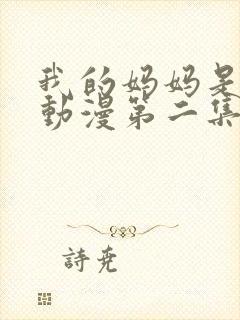 我的妈妈是
動漫第二集
詩尭